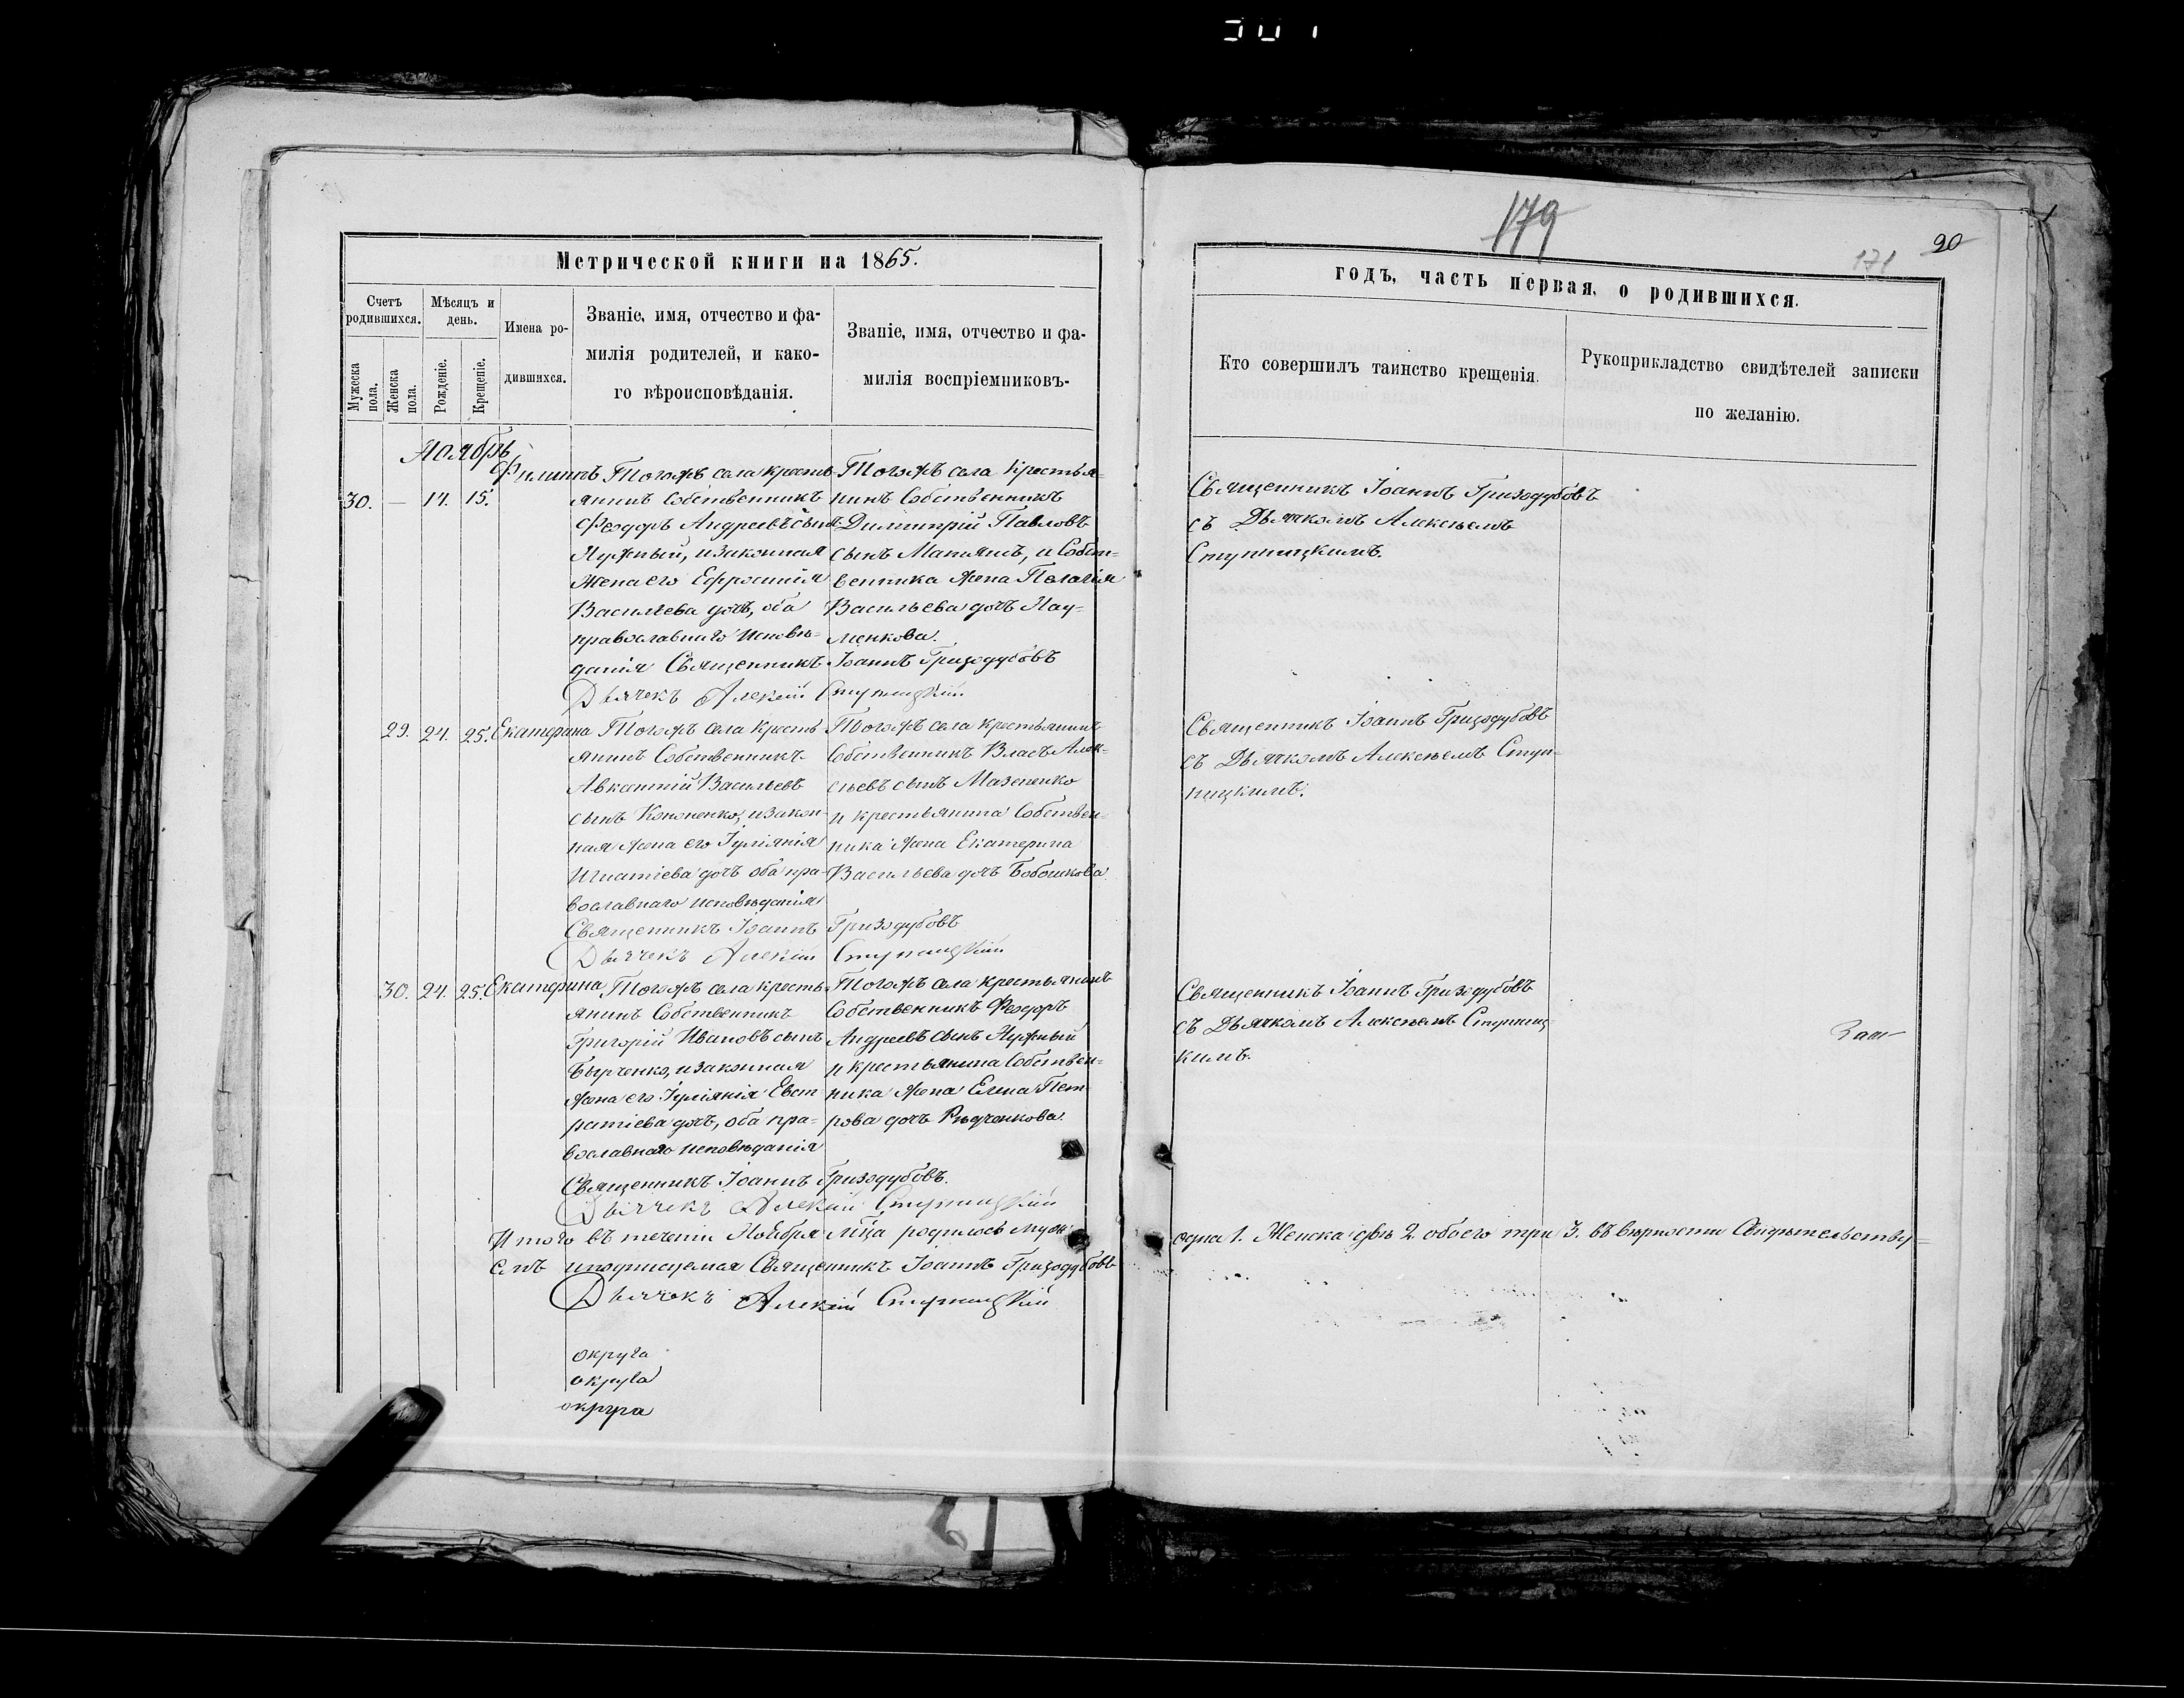 179
171
20
Метрической книги на 1865.
годъ, часть первая, о родившихся.
Счетъ родившихся.
Мѣсяцъ и день.
Имена родившихся.
Званіе, имя, отчество и фа-
милія родителей, и како-
го вѣроисповѣданія.
Званіе, имя, отчество и фа-
милія воспріемниковъ-
Кто совершилъ таинство крещенія.
Рукоприкладство свидѣтелей записки
по желанію.
Мужеска пола.
Женска пола.
Рожденіе.
Крещеніе.
Ноябрь
30. — 14. 15.
Филиппъ
Тогожъ села кресть-
янинъ Собственникъ
Феодоръ Андреевъ сынъ
Нужный, и законная
жена его Ефросинія
Васильева дочь, оба
православнаго исповѣ-
данія Священникъ Іоаннъ Гризодубовъ
Дьячекъ Алексій Ступницкій
Тогожъ села крестья-
нинъ Собственникъ
Димитрій Павловъ
сынъ и Собст-
венника жена Пелагія
Васильева дочь Нау-
менкова.
Священникъ Іоаннъ Гризодубовъ
съ Дьячкомъ Алексѣемъ
Ступницкимъ.
29. 24. 25. Екатерина
Тогожъ села кресть-
янинъ Собственникъ
Авксентій Васильевъ
сынъ Кононенко, и закон-
ная жена его Іуліянія
Игнатіева дочь оба пра-
вославнаго исповѣданія
Священникъ Іоаннъ Гризодубовъ
Дьячекъ Алексій Ступницкій
Тогожъ села крестьянинъ
Собственникъ Власъ Алек-
сѣевъ сынъ Мазепенко
и крестьянина Собствен-
ника жена Екатерина
Васильева дочь Бобошкова
Священникъ Іоаннъ Гризодубовъ
съ Дьячкомъ Алексѣемъ Ступ-
ницкимъ.
30. 24. 25. Екатерина
Тогожъ села кресть-
янинъ Собственникъ
Григорій Ивановъ сынъ
и законная
жена его Іуліянія Евст-
ратіева дочь, оба пра-
вославнаго исповѣданія
Священникъ Іоаннъ Гризодубовъ.
Дьячекъ Алексій Ступницкій
Тогожъ села крестьянинъ
Собственникъ Феодоръ
Андреевъ сынъ Нужный
и крестьянина Собствен-
ника жена Елена Пет-
рова дочь Рѣдченкова.
Священникъ Іоаннъ Гризодубовъ
съ Дьячкомъ Алексѣемъ Ступниц-
кимъ.
Итого въ теченіи Ноября мѣца родилось муж: одна 1. Женска двѣ 2. обоего три 3. въ вѣрности Свидѣтельству-
емъ Священникъ Іоаннъ Гризодубовъ
Дьячекъ Алексій Ступницкій
округа
округа
округа